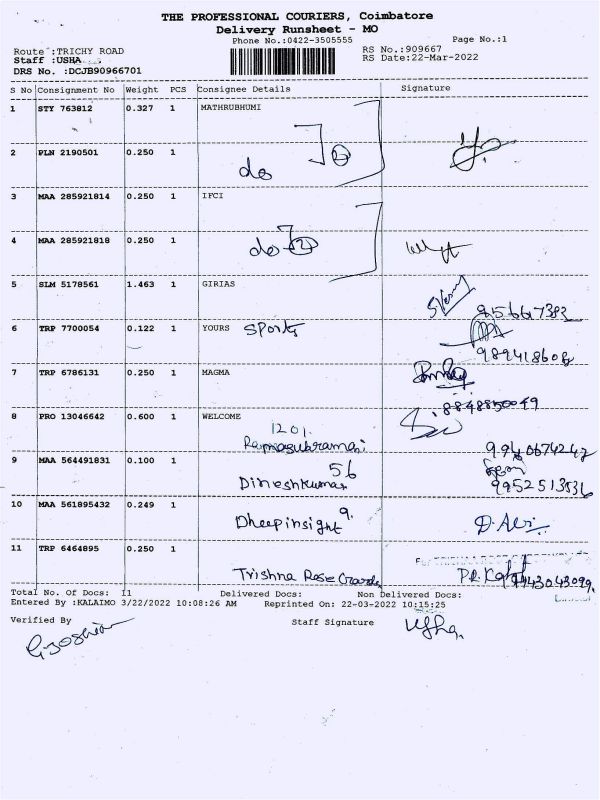 THE PROFESSIONAL COURIERS, Coimbatore
Delivery Runsheet - MO
Phone No.:0422-3505555
Page No.:1
Route :TRICHY ROAD
RS No.:909667
Staff :USHA
RS Date:22-Mar-2022
DRS No. :DCJB90966701
S No Consignment No Weight PCS Consignee Details Signature
1 STY 763812 0.327 1 MATHRUBHUMI
2 PLN 2190501 0.250 1
do 2
3 MAA 285921814 0.250 1 IFCI
4 MAA 285921818 0.250 1
do 2
5 SLM 5178561 1.463 1 GIRIAS
6 TRP 7700054 0.122 1 YOURS Sports
989418608
7 TRP 6786131 0.250 1 MAGMA
8848850049
8 PRO 13046642 0.600 1 WELCOME
1201.
Ramasubramani
9940674247
9 MAA 564491831 0.100 1
56
Dineshkumar
9952513536
10 MAA 561895432 0.249 1
9.
Dheepinsight
11 TRP 6464895 0.250 1
Trishna Rose
9443043099.
Total No. Of Docs: 11 Delivered Docs: Non Delivered Docs:
Entered By :KALAIMO 3/22/2022 10:08:26 AM Reprinted On: 22-03-2022 10:15:25
Verified By Staff Signature
Usha.